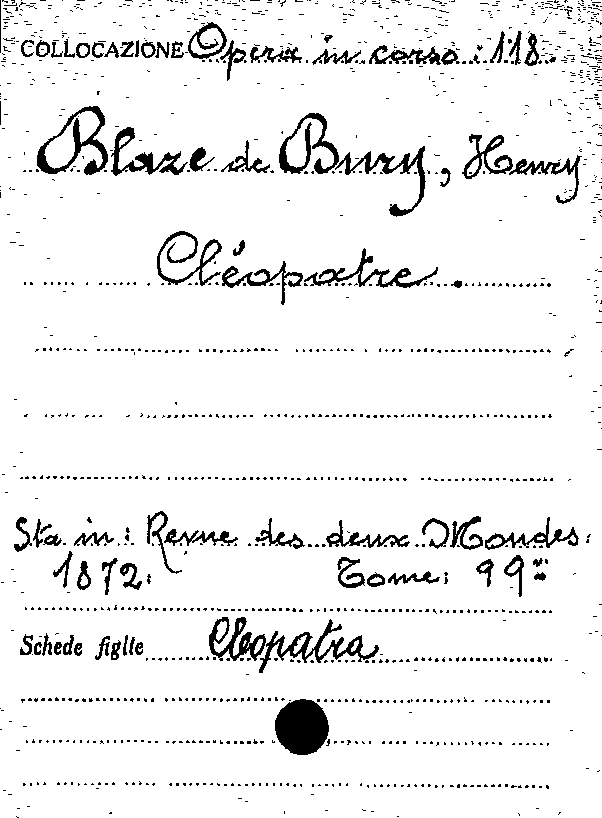 COLLOCAZIONE Opera in corso: 118.
Blaze de Bury, Henry
Cléopatre.
Sta in: Revue des deux Mondes:
1872. Tome: 99
Schede figlie Cleopatra